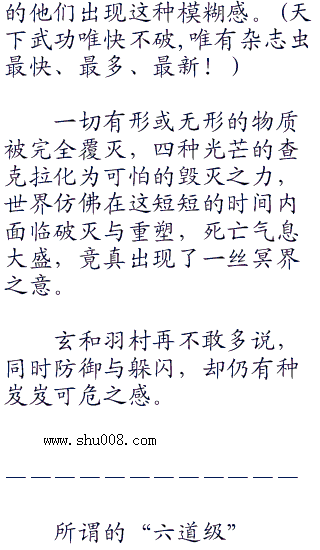 的他们出现这种模糊感。(天
下武功唯快不破,唯有杂志虫
最快、最多、最新！)
一切有形或无形的物质
被完全覆灭，四种光芒的查
克拉化为可怕的毁灭之力，
世界仿佛在这短短的时间内
面临破灭与重塑，死亡气息
大盛，竟真出现了一丝冥界
之意。
玄和羽村再不敢多说，
同时防御与躲闪，却仍有种
岌岌可危之感。
www.shu008.com
————————————
所谓的“六道级”